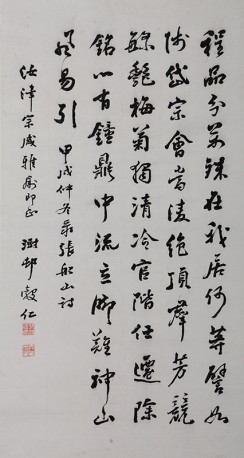 程品分萬殊在我居何等譬如
陟岱宗會當凌絕頂群芳競
艷梅菊獨清冷官階任遷除
銘心有鐘鼎中流立腳難神山
風易引 甲戌仲冬录張船山詩
汝津宗咸雅屬即正 澍邨穀仁